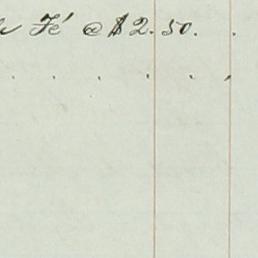 Fé @ $2.50. .
. . . . . .